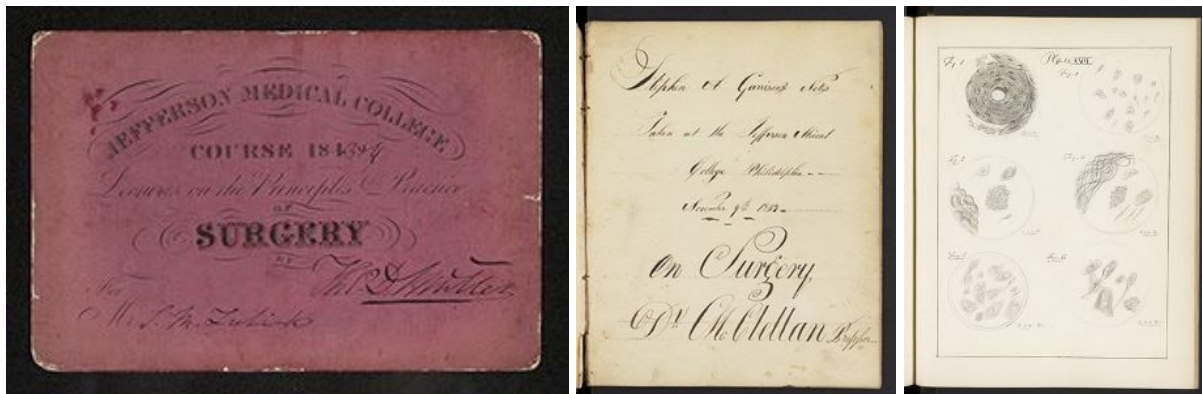 JEFFERSON MEDICAL COLLEGE
COURSE 1843-4
Lectures on the Principles & Practice
OF
SURGERY
BY
Tho. D. Mütter
For
Mr. S. M.
Stephen A Garrison's Notes
Taken at the Jefferson Medical
College Philadelphia
November 9th
on Surgery
Dr. McClellan Professor
Plate XVII.
Fig. 1
Fig. 2
Fig. 3
Fig. 4
Fig. 5
Fig. 6